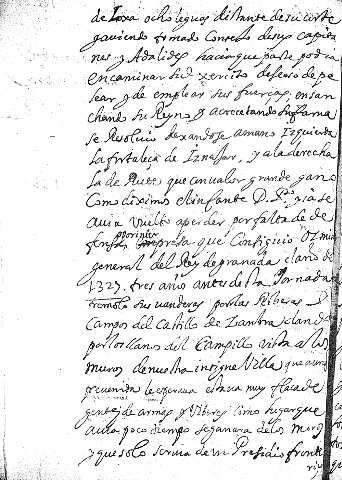 de Loxa ocho leguas distante de su corte
y aviendo formado Consejo de sus capita
nes y Adalides hacia que parte podria
encaminar su exercito deseoso de pe
lear y de emplear sus fuerças, ensan
chando su Reyno y acrecetando su fama
se Resolvio dexandose a mano Izquierda
la fortaleça de Iznajar, y a la derecha
la de Rute que con valor grande gano
Como diximos el infante D. P.º y ia se
avia vuelto a perder por falta de de
fensa por inter impresa que Consiguio Ozmin
general del Rey de granada el año de
1327. tres años antes desta Jornada
tremolo sus vanderas por las Riberas y
Campos del Castillo de
por los llanos del Campillo vista a los
muros de nuestra insigne Villa que aun
prevenida le esperava estava muy flaca de
gente de armas y Viveres Como lugar que
avia poco tiempo se ganara de los moros
y que solo servia de un Presidio fronte